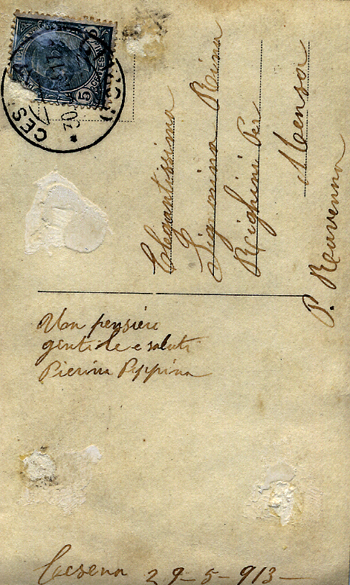 Elegantissima
Signorina Reina
Righini Per
Mensa
P. Ravenna
Un pensiero
gentile e saluti
Pierini Peppina
Cesena 29-5-913-